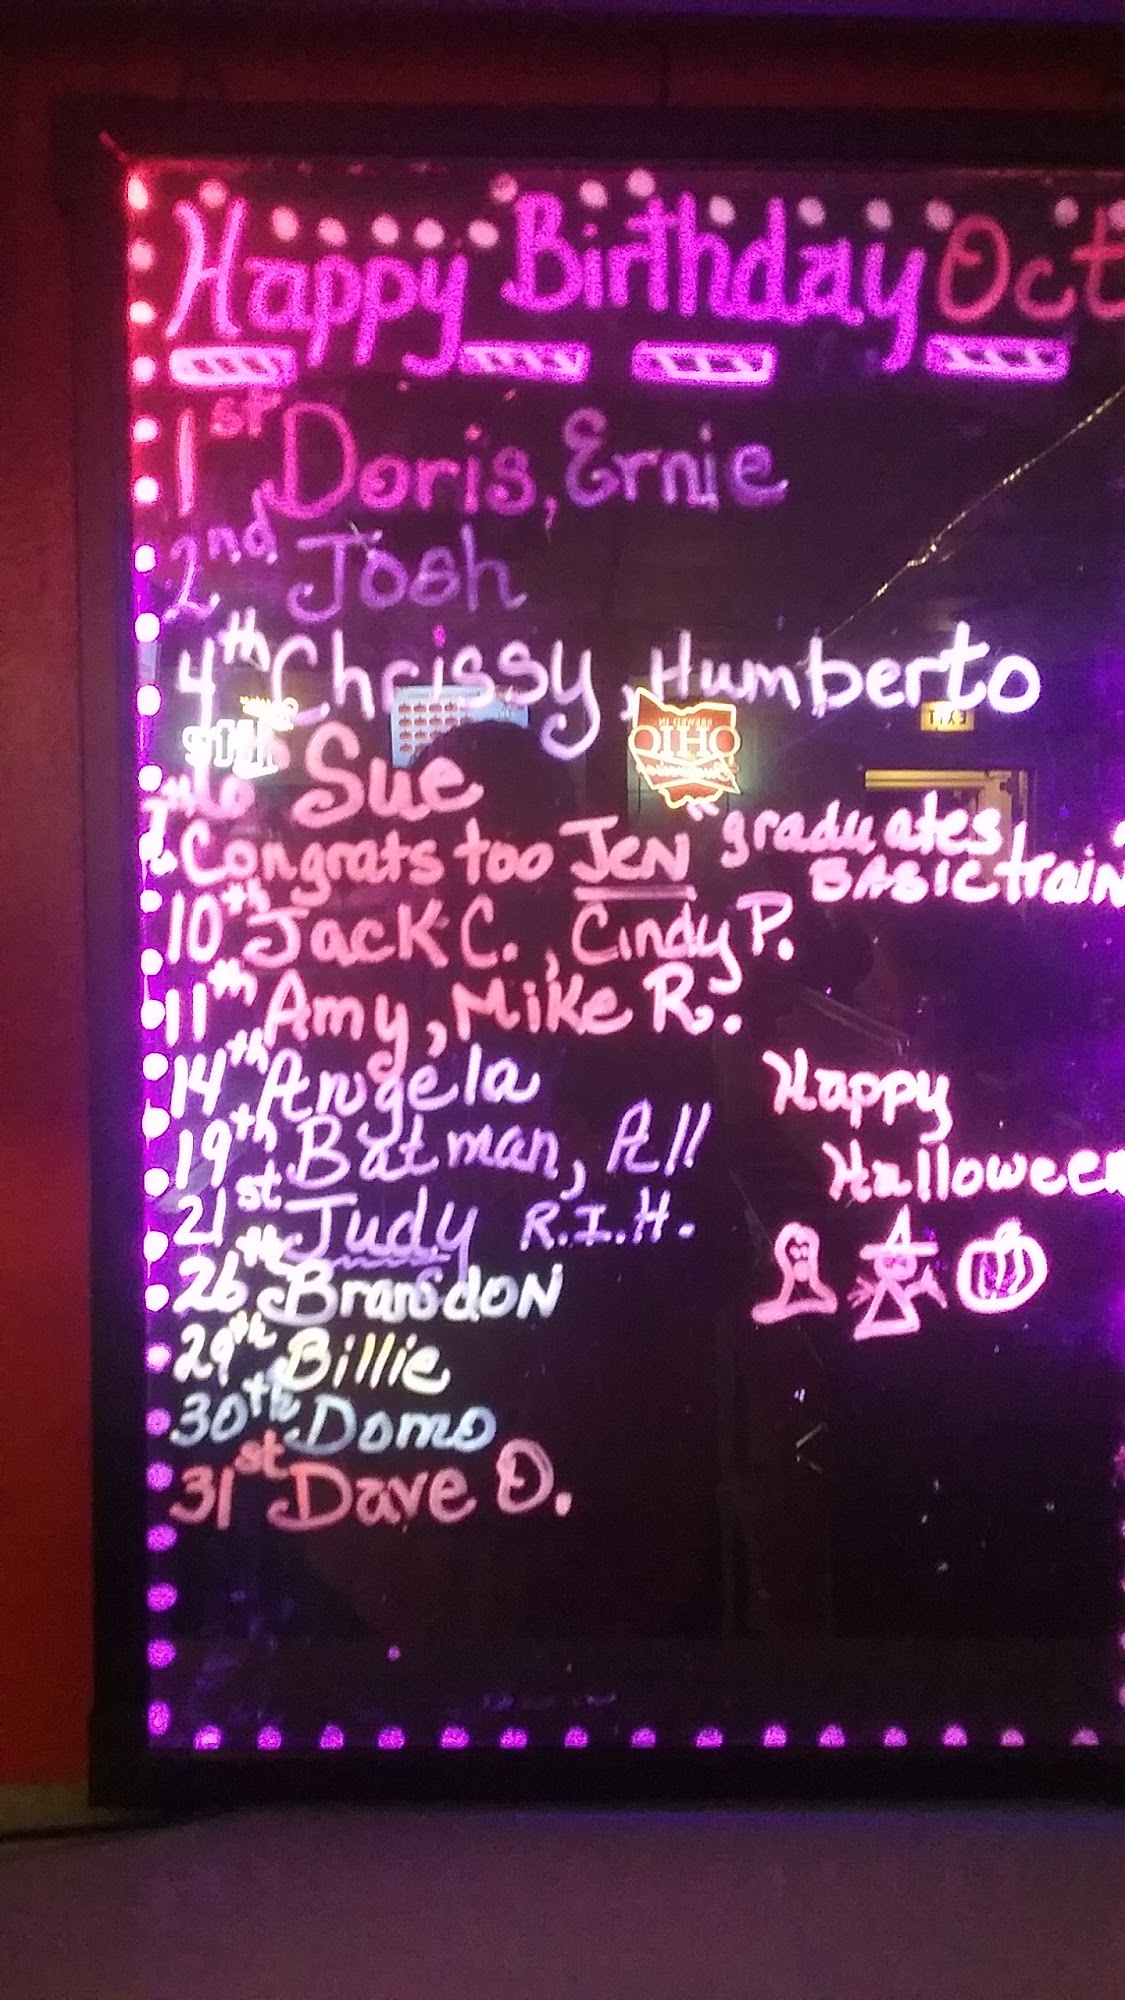 Happy Birthday Oct
1st Doris, Ernie
2nd Josh
4th Chrissy, Humberto
6th Sue
7th Congrats too JEN "graduates
BASIC train
10th Jack C., Cindy P.
11th Amy, Mike R.
14th Angela
19th Batman, All
21st Judy R.I.H.
26th Brandon
29th Billie
30th Domo
31st Dave O.
Happy
Halloween
OHIO
EXIT